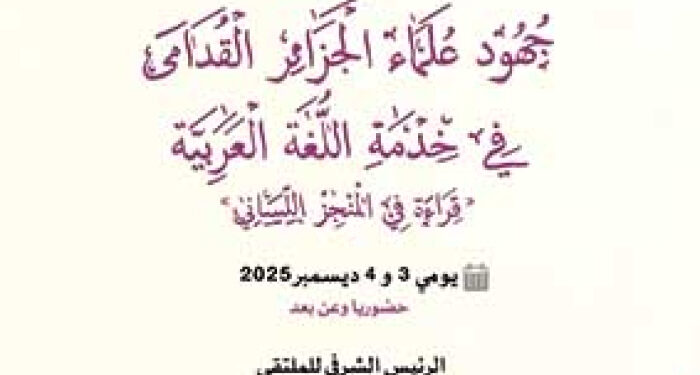 جُهُود عُلَمَاء الجَزَائِر القُدَامَى
فِي خِدْمَةِ اللُّغَة العَرَبِيَّة
"قِرَاءَة فِي المُنْجَز اللِّسَانِي"
يومي 3 و 4 ديسمبر 2025
حضوريا وعن بعد
الرئيس الشرفي للملتقى